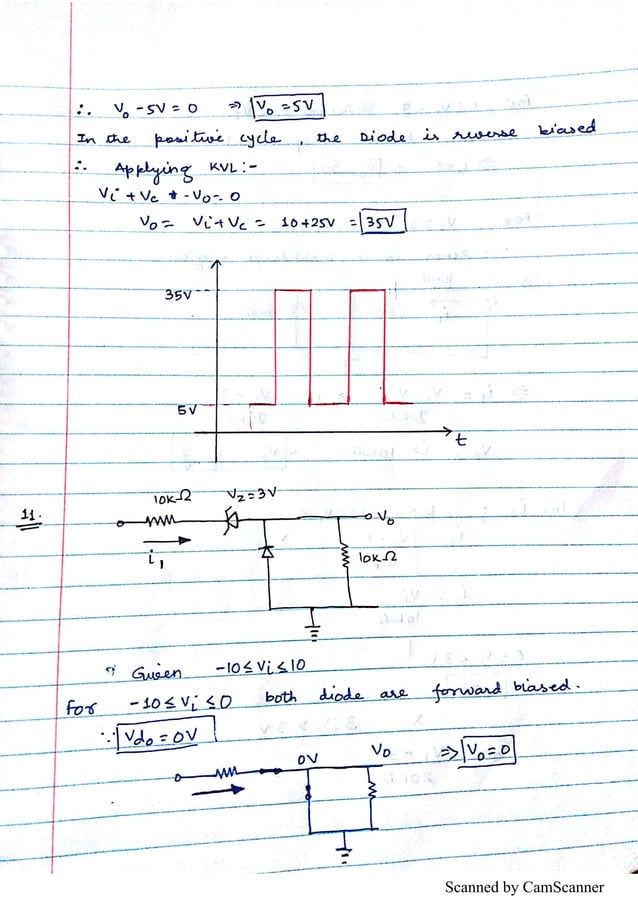 ∴ V₀ - 5V = 0 ⇒ V₀ = 5V
In the positive cycle, the Diode is reverse biased
∴ Applying KVL:-
Vi + Vc - V₀ = 0
V₀ = Vi + Vc = 10 + 25V = 35V
35V
5V
t
11.
10K Ω Vz = 3V
V₀
i₁
10K Ω
Given -10 ≤ Vi ≤ 10
For -10 ≤ Vi ≤ 0 both diode are forward biased.
∵ Vdo = 0V
0V V₀ ⇒ V₀ = 0
Scanned by CamScanner